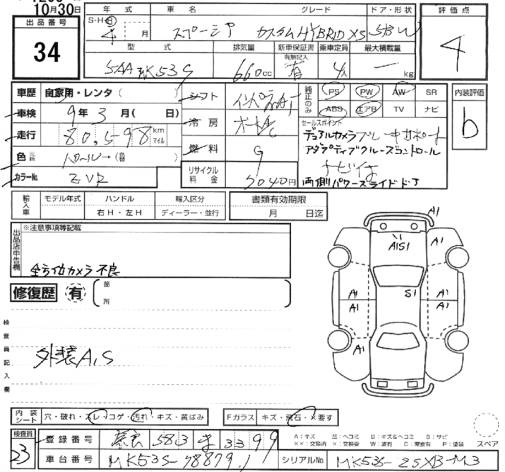 10月30日
年式 車名 グレード ドア・形状 評価点
出品番号 S・H・R 4 月 スペーシア カスタムHYBRID XS 5BW 4
34
型式 排気量 新車保証書 乗車定員 最大積載量
有無記入
5AA MK53S 660cc 有 4人 kg
車歴 自家用・レンタ( ) シフト PS PW AW SR 内装評価
車検 9年3月( 日) 冷房 純正のみ ABS エアB TV ナビ b
走行 80,598 km マイル セールスポイント
デュアルカメラブレーキサポート
色 パール 燃料 G アダプティブクルーズコントロール
カラーNo. ZVR リサイクル料金 円 ナビ付
両側パワースライドドア
輸入車 モデル年式 ハンドル 輸入区分 書類有効期限
年 右H・左H ディーラー・並行 月 日迄
※注意事項等記載
出品店申告欄
全方位カメラ不良
修復歴 有 箇所
検査員記入欄
外装A,S
A1
A1S1
A1 S1 A1
A1 A1
内装シート 穴・破れ・スレ・コゲ・汚れ・キズ・黄ばみ Fガラス キズ・飛石・X要す
検査員 登録番号 583 3399
23 車台番号 MK53S-788791 シリアルNo. MK53S-25XB-M3
A:キズ U:ヘコミ B:キズ&ヘコミ S:サビ
スペア